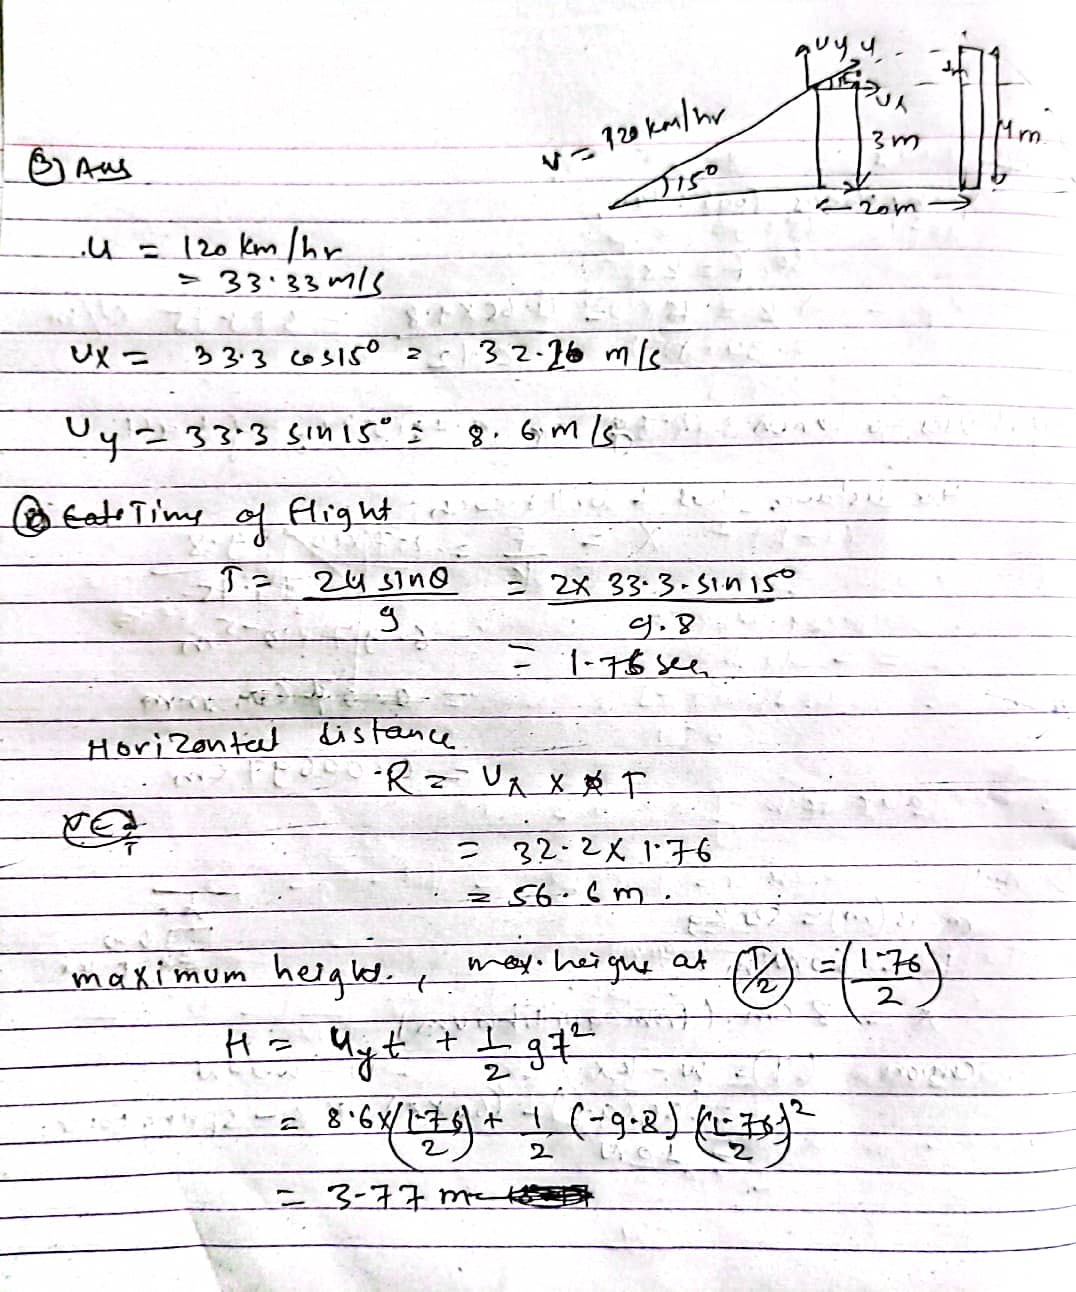 uy u
1m
15°
ux
v = 120 km/hr
3m
4m
15°
20m
3) Ans
u = 120 km/hr
= 33.33 m/s
ux = 33.3 cos15° = 32.26 m/s
uy = 33.3 sin15° = 8.6 m/s
Time of flight
T = 2u sinθ / g = 2x 33.3. sin15° / 9.8
= 1.76 sec
Horizontal distance
R = ux x T
= 32.2 x 1.76
= 56.6 m.
maximum height, max. height at (T/2) = (1.76/2)
H = uyt + 1/2 gt²
= 8.6x(1.76/2) + 1/2 (-9.8) (1.76/2)²
= 3.77 m